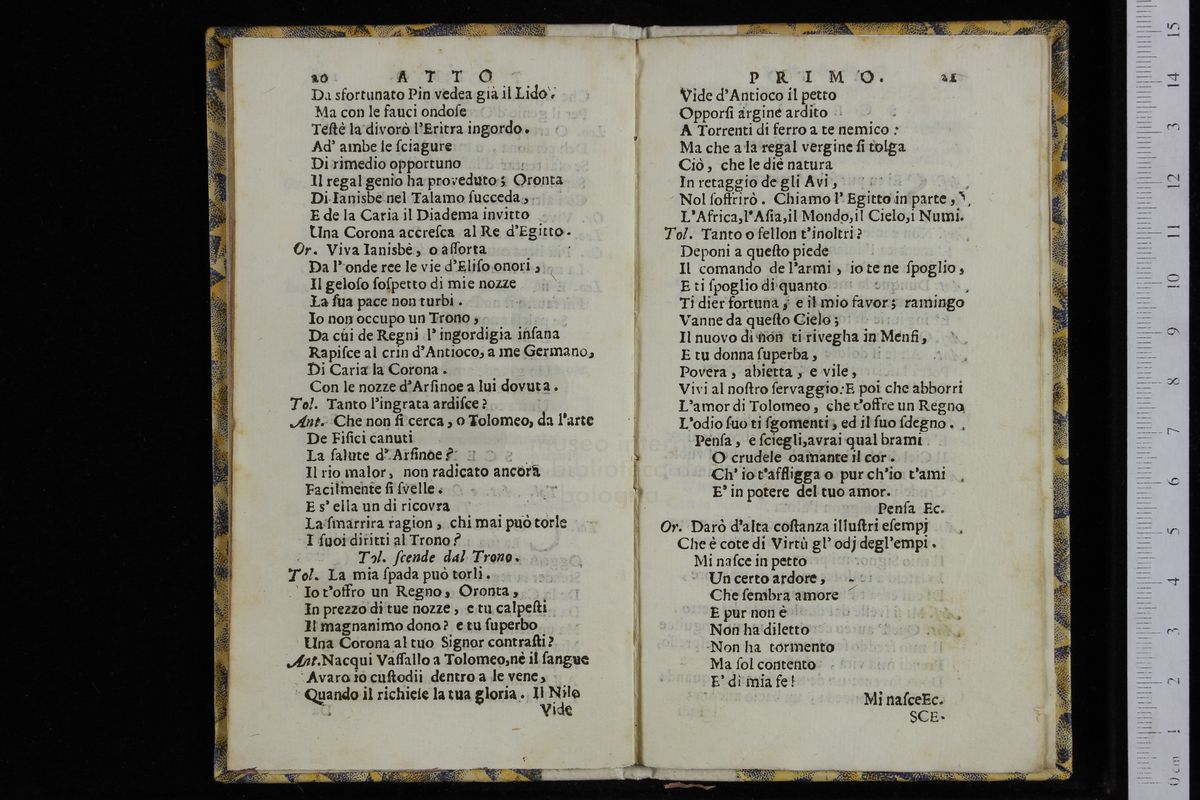 20 ATTO
Da sfortunato Pin vedea già il Lido.
Ma con le fauci ondoſe
Teſtè la divorò l'Eritra ingordo.
Ad' ambe le ſciagure
Di rimedio opportuno
Il regal genio ha proveduto; Oronta
Di Ianisbe nel Talamo ſucceda,
E de la Caria il Diadema invitto
Una Corona accreſca al Re d'Egitto.
Or. Viva Ianisbe, o aſſorta
Da l'onde ree le vie d'Eliſo onori,
Il geloſo ſoſpetto di mie nozze
La ſua pace non turbi.
Io non occupo un Trono,
Da cui de Regni l'ingordigia inſana
Rapiſce al crin d'Antioco, a me Germano,
Di Caria la Corona.
Con le nozze d'Arſinoe a lui dovuta.
Tol. Tanto l'ingrata ardiſce?
Ant. Che non ſi cerca, o Tolomeo, da l'arte
De Fiſici canuti
La ſalute d'Arſinoe?
Il rio malor, non radicato ancora
Facilmente ſi ſvelle.
E s' ella un di ricovra
La ſmarrira ragion, chi mai può torle
I ſuoi diritti al Trono?
Tol. ſcende dal Trono.
Tol. La mia ſpada può torli.
Io t'offro un Regno, Oronta,
In prezzo di tue nozze, e tu calpeſti
Il magnanimo dono? e tu ſuperbo
Una Corona al tuo Signor contraſti?
Ant. Nacqui Vaſſallo a Tolomeo, nè il ſangue
Avaro io cuſtodii dentro a le vene,
Quando il richieſe la tua gloria. Il Nilo
Vide
PRIMO. 21
Vide d'Antioco il petto
Opporſi argine ardito
A Torrenti di ferro a te nemico:
Ma che a la regal vergine ſi tolga
Ciò, che le diè natura
In retaggio de gli Avi,
Nol ſoffrirò. Chiamo l'Egitto in parte,
L'Africa, l'Aſia, il Mondo, il Cielo, i Numi.
Tol. Tanto o fellon t'inoltri?
Deponi a queſto piede
Il comando de l'armi, io te ne ſpoglio,
E ti ſpoglio di quanto
Ti dier fortuna, e il mio favor; ramingo
Vanne da queſto Cielo;
Il nuovo di non ti rivegha in Menfi,
E tu donna ſuperba,
Povera, abietta, e vile,
Vivi al noſtro ſervaggio: E poi che abborri
L'amor di Tolomeo, che t'offre un Regno
L'odio ſuo ti ſgomenti, ed il ſuo ſdegno.
Penſa, e ſciegli, avrai qual brami
O crudele oamante il cor.
Ch' io t'affligga o pur ch'io t'ami
E' in potere del tuo amor.
Penſa Ec.
Or. Darò d'alta coſtanza illuſtri eſempj
Che è cote di Virtù gl' odj degl'empi.
Mi naſce in petto
Un certo ardore,
Che ſembra amore
E pur non è
Non ha diletto
Non ha tormento
Ma ſol contento
E' di mia fe!
Mi naſceEc.
SCE-